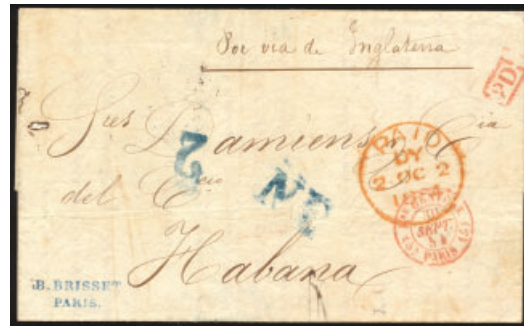 Por via de Inglaterra
PD
Sres Damiens y Cia
del Ccio
Habana
2
NE
PAID
DY
2 DC 2
SEPT
PARIS
B. BRISSET
PARIS.